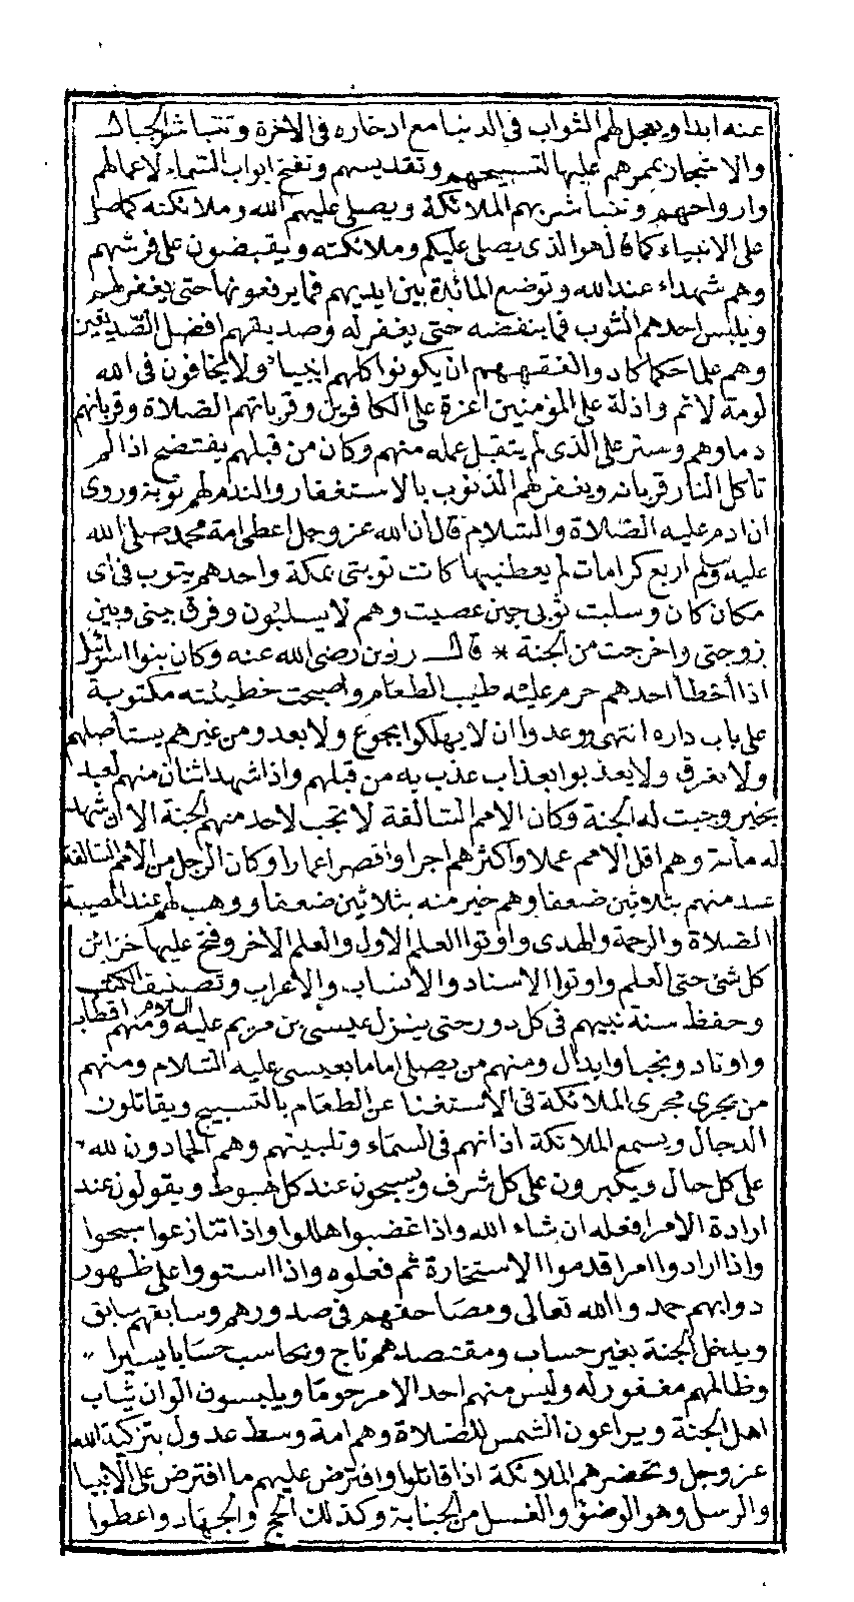 عنه ابدا ويعجل لهم الثواب في الدنيا مع ادخاره في الاخرة وتتباشر الجبال
والاشجار بممرهم عليها لتسبيحهم وتقديسهم وتفتح ابواب السماء لاعمالهم
وارواحهم وتتباشر بهم الملائكة ويصلى عليهم الله وملائكته كما صلى
على الانبياء كما قال هو الذى يصلى عليكم وملائكته ويقبضون على فرشهم
وهم شهداء عند الله وتوضع المائدة بين ايديهم فما يرفعونها حتى يغفر لهم
ويلبس احدهم الثوب فما ينفضه حتى يغفر له وصديقهم افضل الصديقين
وهم علما حكما كادوا لفقههم ان يكونوا كلهم انبيا ولا يخافون في الله
لومة لائم واذلة على المؤمنين اعزة على الكافرين وقرباتهم الصلاة وقربانهم
دماوهم وستر على الذى لم يتقبل عمله منهم وكان من قبلهم يفتضح اذا لم
تاكل النار قربانه ويغفر لهم الذنوب بالاستغفار والندم لهم توبة وروى
ان ادم عليه الصلاة والسلام قال ان الله عز وجل اعطى امة محمد صلى الله
عليه وسلم اربع كرامات لم يعطنيها كانت توبتى بمكة واحدهم يتوب في اى
مكان كان وسلبت ثوبى حين عصيت وهم لا يسلبون وفرق بينى وبين
زوجتى واخرجت من الجنة * قال رزين رضى الله عنه وكان بنوا اسرائيل
اذا أخطأ احدهم حرم عليه طيب الطعام واصبحت خطيئته مكتوبة
على باب داره انتهى ووعدوا ان لا يهلكوا بجوع ولا بعدو من غيرهم يستأصلهم
ولا بغرق ولا يعذبوا بعذاب عذب به من قبلهم واذا شهد اثنان منهم لعبد
بخير وجبت له الجنة وكان الامم السالفة لا تجب لاحد منهم الجنة الا ان شهد
له مائة وهم اقل الامم عملا واكثرهم اجرا واقصر اعمارا وكان الرجل من الامم السالفة
عبد منهم بثلاثين ضعفا وهم خير منه بثلاثين ضعفا ووهب لهم عند المصيبة
الصلاة والرحمة والهدى واوتوا العلم الاول والعلم الاخر وفتح عليها خزائن
كل شئ حتى العلم واوتوا الاسناد والانساب والاعراب وتصنيف الكتب
وحفظ سنة نبيهم في كل دور حتى ينزل عيسى بن مريم عليه السلام ومنهم اقطاب
واوتاد ونجبا وابدال ومنهم من يصلى اماما بعيسى عليه السلام ومنهم
من يجرى مجرى الملائكة في الاستغنا عن الطعام بالتسبيح ويقاتلون
الدجال ويسمع الملائكة اذانهم في السماء وتلبيتهم وهم الحمادون لله
على كل حال ويكبرون على كل شرف ويسبحون عند كل هبوط ويقولون عند
ارادة الامر افعله ان شاء الله واذا غضبوا هللوا واذا تنازعوا سبحوا
واذا ارادوا امرا قدموا الاستخارة ثم فعلوه واذا استووا على ظهور
دوابهم حمدوا الله تعالى ومصاحفهم في صدورهم وسابقهم سابق
ويدخل الجنة بغير حساب ومقتصدهم ناج ويحاسب حسابا يسيرا
وظالمهم مغفور له وليس منهم احد الا مرحوما ويلبسون الوان ثياب
اهل الجنة ويراعون الشمس للصلاة وهم امة وسط عدول بتزكية الله
عز وجل وتحضرهم الملائكة اذا قاتلوا وافترض عليهم ما افترض على الانبيا
والرسل وهو الوضوء والغسل من الجنابة وكذلك الحج والجهاد واعطوا